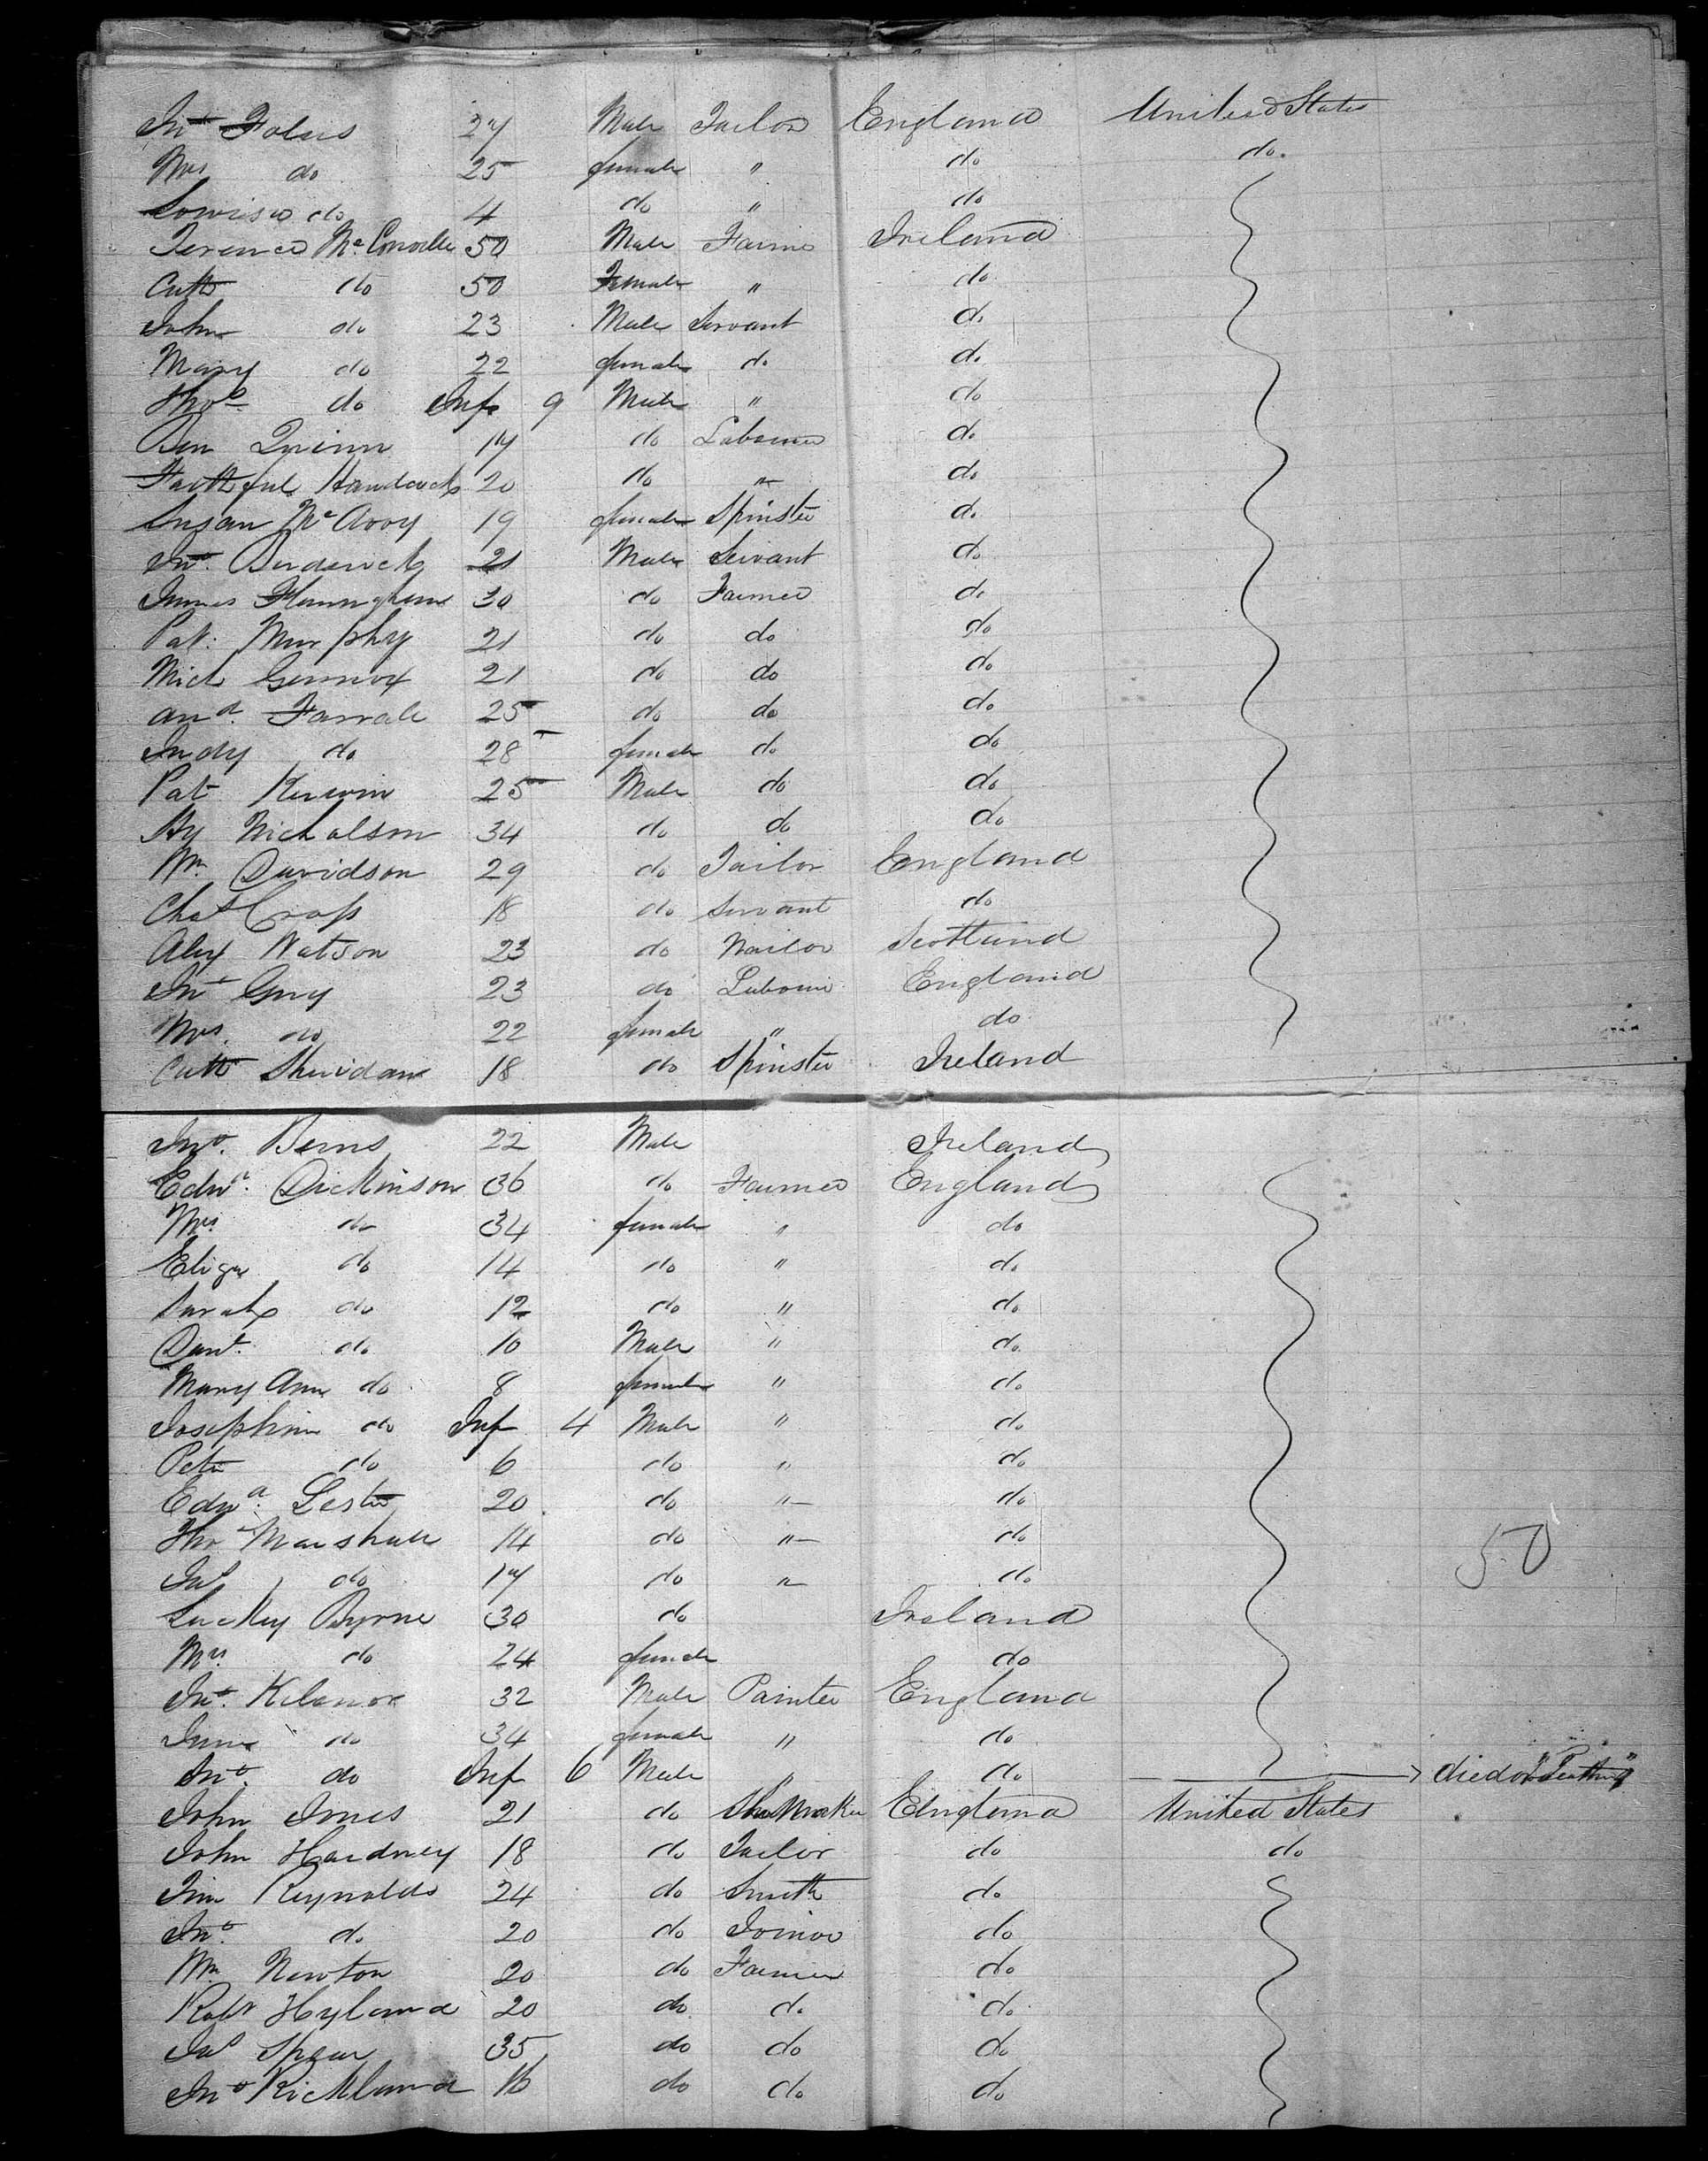 Jno Foles 27 Male Tailor England United States
Mrs do 25 female " do do.
Lowisa do 4 do " do
Terence McConville 50 Male Farmer Ireland
Cath do 50 Female " do
John do 23 Male Servant do
Mary do 22 female do do
Thos do Inf 9 Male " do
Ben Quinn 17 do Labourer do
Faithful 20 do " do
Susan McAvoy 19 female Spinster do
Jno. Broderick 21 Male Servant do
James 30 do Farmer do
Pat. Murphy 21 do do do
Mich 21 do do do
And. Farrale 25 do do do
Judy do 28 female do do
Pat Kerwin 25 Male do do
Hy Nicholson 34 do do do
Wm Davidson 29 do Tailor England
Chas Cross 18 do Servant do
Alex Watson 23 do Nailor Scotland
Jno Guy 23 do Labourer England
Mrs. do 22 female " do
Cath Sheridan 18 do Spinster Ireland
Jno. Berns 22 Male Ireland
Edwd. Dickinson 36 do Farmer England
Mrs do 34 female " do
Eliza do 14 do " do
Sarah do 12 do " do
Danl. do 10 Male " do
Mary Ann do 8 female " do
Josephine do Inf 4 Male " do
Peter do 6 do " do
Edwd. Lester 20 do " do
Thos Marshall 14 do " do 50
Jas do 17 do " do
Luckey Byrne 30 do Ireland
Mrs. do 24 female do
Jno. 32 Male Painter England
Jane do 34 female " do
Jno. do Inf 6 Male " do died of "Teething"
John Jones 21 do Shoemaker England United States
John Hardney 18 do Tailor do do
Jim Reynolds 24 do Smith do
Jno. do 20 do Joiner do
Wm Newton 20 do Farmer do
Robt Hyland 20 do do do
Jas Spear 35 do do do
Jno Rickland 16 do do do